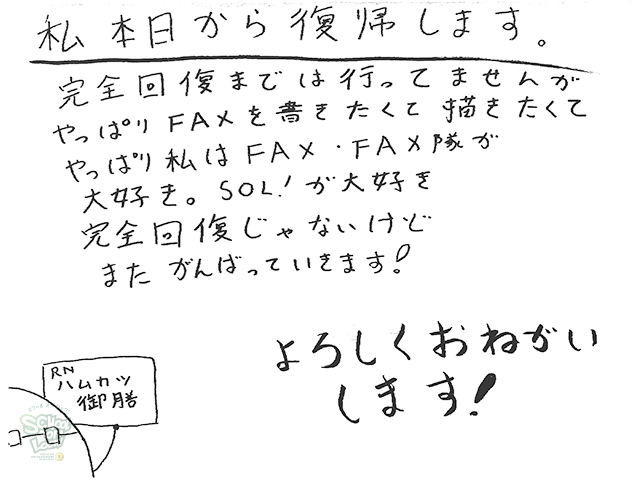 私本日から復帰します。
完全回復までは行ってませんが
やっぱりFAXを書きたくて描きたくて
やっぱり私はFAX・FAX隊が
大好き。SOL!が大好き
完全回復じゃないけど
またがんばっていきます!
よろしくおねがい
します!
RN
ハムカツ
御膳